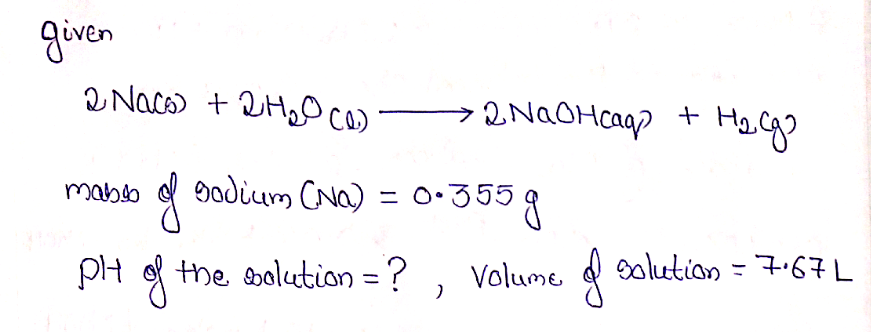 given
2 Na(s) + 2H₂O (l) ⟶ 2 NaOH(aq) + H₂(g)
mass of sodium (Na) = 0.355 g
pH of the solution = ? , Volume of solution = 7.67 L